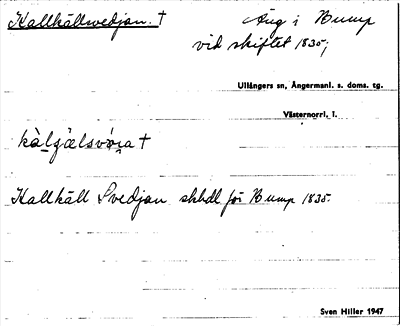 Kallkällsvedjan. † Äng i Bump
vid skiftet 1835;
Ullångers sn, Ångermanl. s. doms. tg.
Västernorrl. l.
Kallkäll Svedjan skhdl för Bump 1835.
Sven Hiller 1947